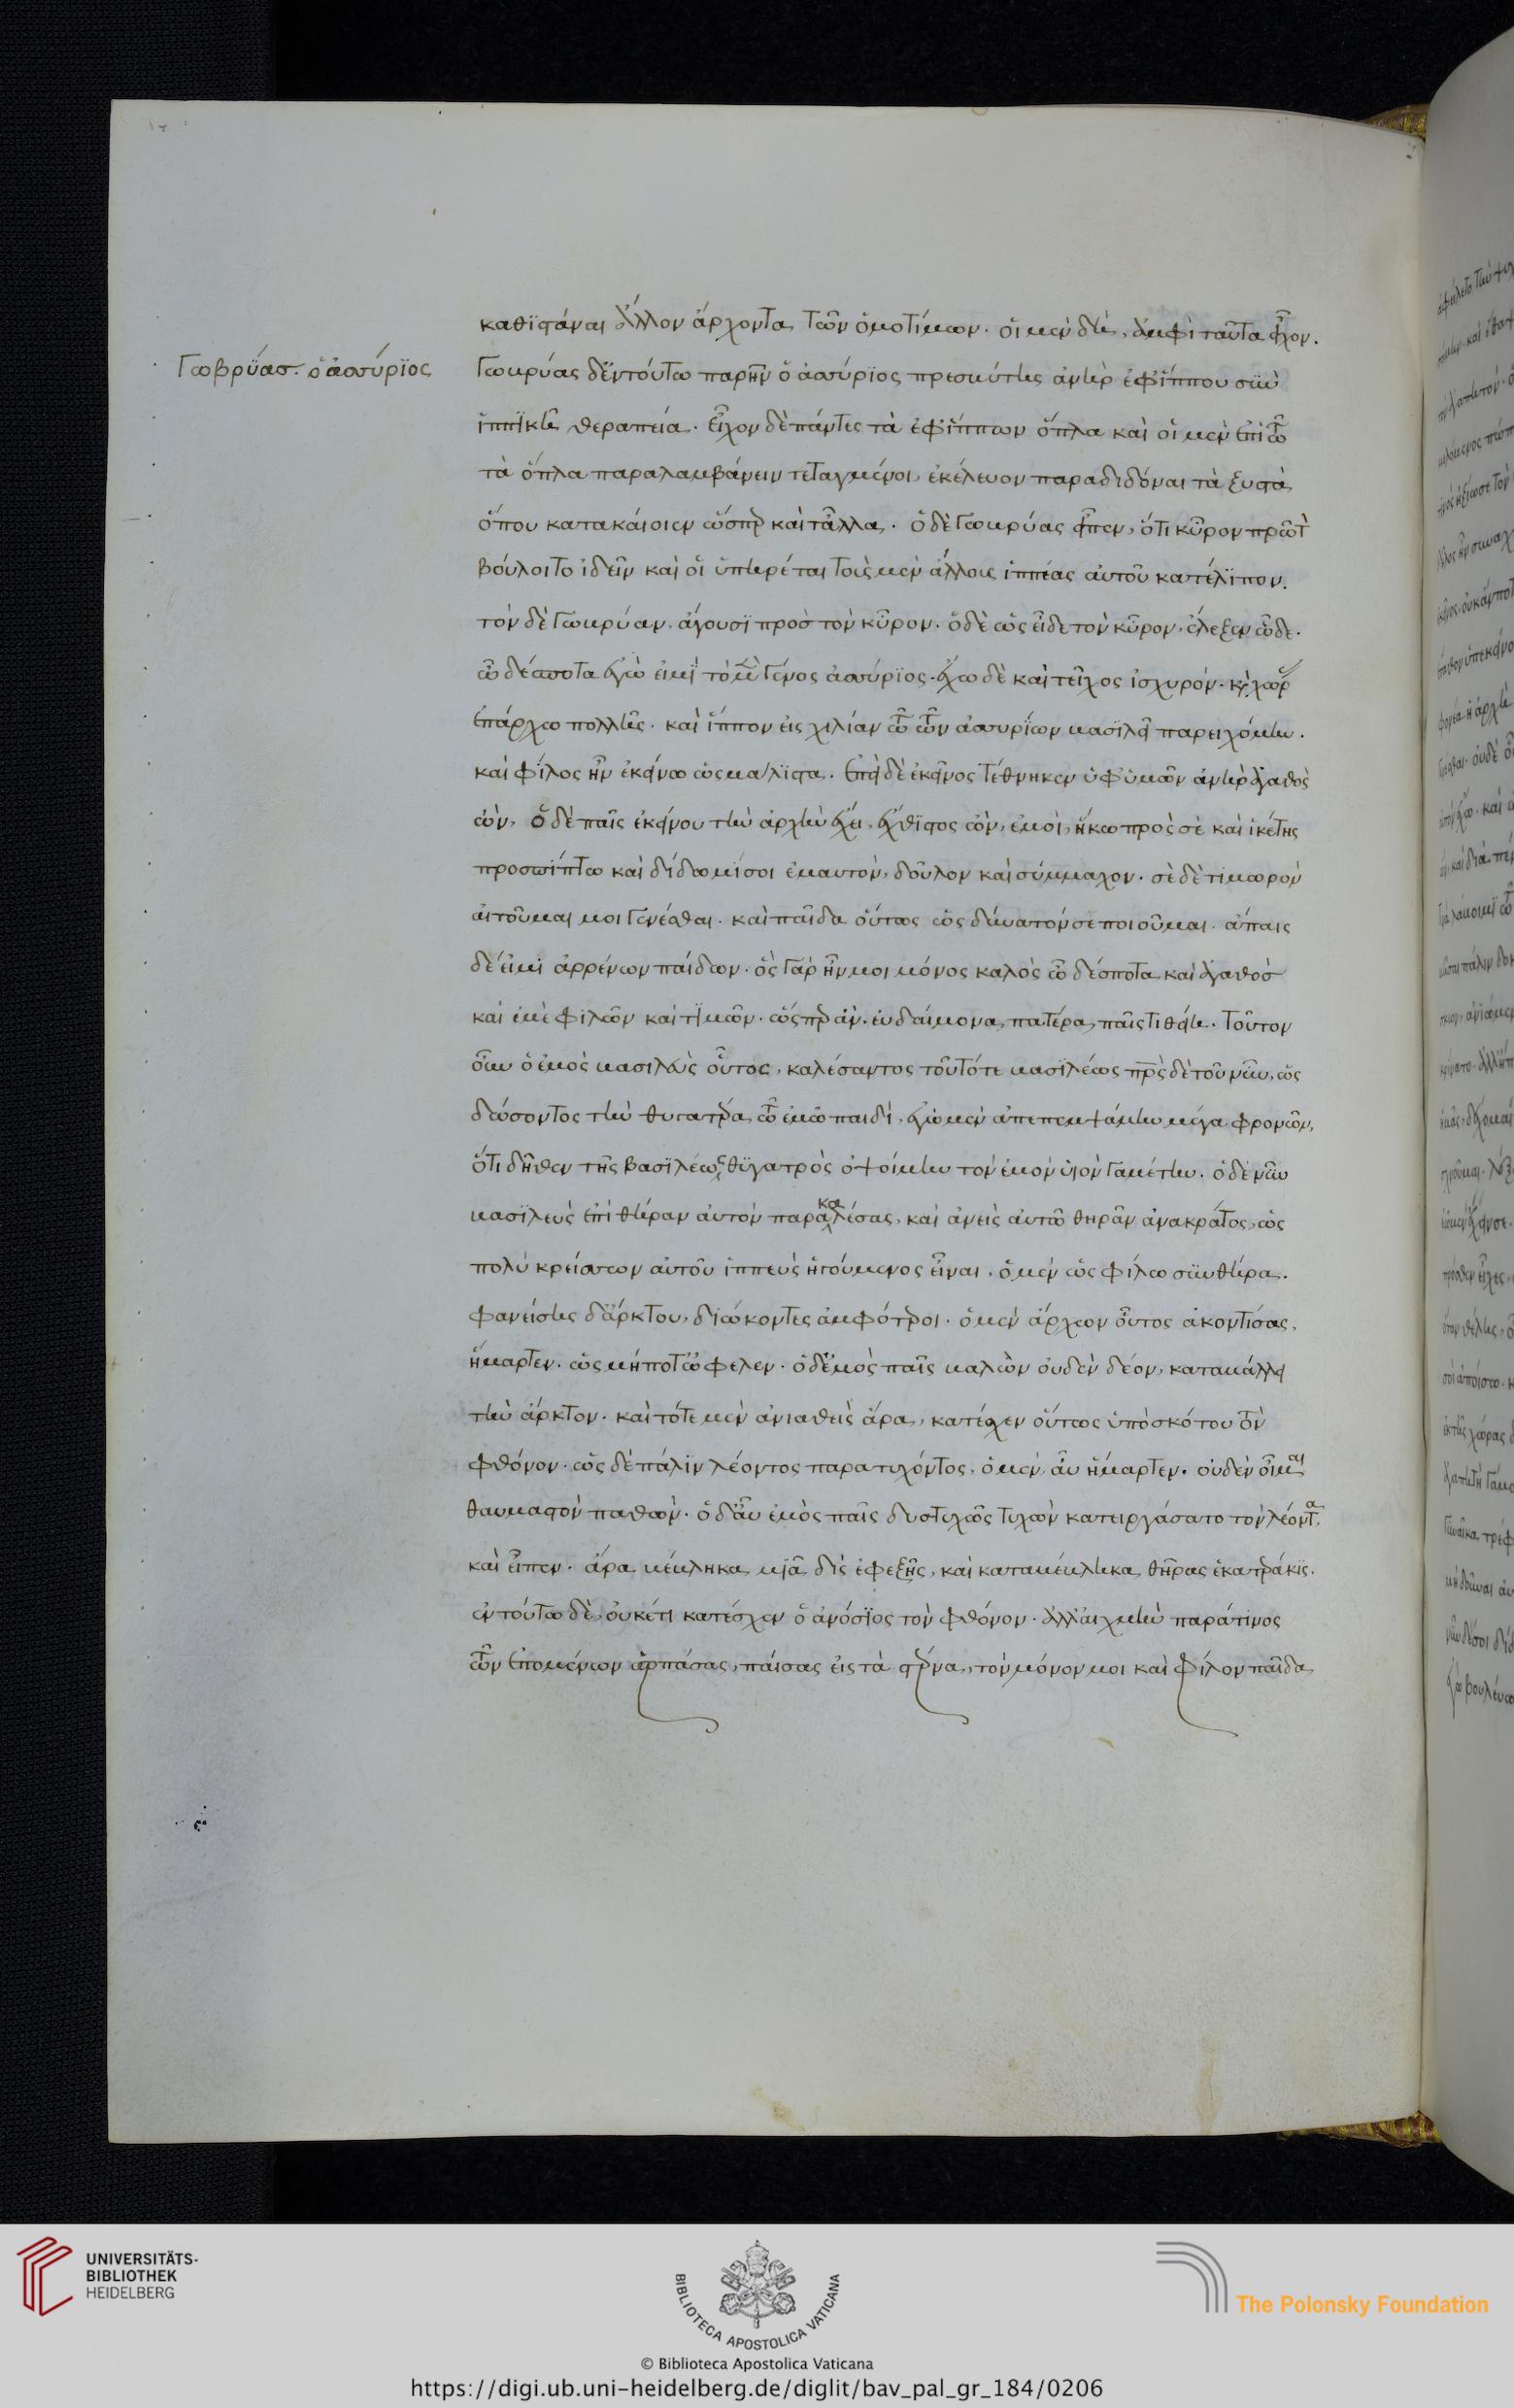 καθιστάναι ἄλλον ἄρχοντα τῶν ὁμοτίμων. οἱ μὲν δὴ, ἀμφὶ ταῦτα εἶχον.
Γωβρύας. ὁ ἀσσύριος
Γωβρύας δ' ἐν τούτω παρῆν ὁ ἀσσύριος πρεσβύτης ἀνὴρ ἐφ' ἵππου σὺν
ἱππικῆ θεραπεία. εἶχον δὲ πάντες τὰ ἐφίππων ὅπλα καὶ οἱ μὲν ἐπὶ τῶ
τὰ ὅπλα παραλαμβάνειν τεταγμένοι, ἐκέλευον παραδιδόναι τὰ ξυστὰ
ὅπου κατακάοιεν ὥσπερ καὶ τἆλλα. ὁ δὲ Γωβρύας εἶπεν, ὅτι κῦρον πρῶτον
βούλοιτο ἰδεῖν καὶ οἱ ὑπηρέται τοὺς μὲν ἄλλους ἱππέας αὐτοῦ κατέλιπον.
τὸν δὲ Γωβρύαν, ἄγουσι πρὸς τὸν κῦρον. ὁ δὲ ὡς εἶδε τὸν κῦρον, ἔλεξεν ὧδε.
ὦ δέσποτα ἐγώ εἰμι τὸ μὲν γένος ἀσσύριος. ἔχω δὲ καὶ τεῖχος ἰσχυρόν. καὶ χώρας
ἐπάρχω πολλῆς. καὶ ἵππον εἰς χιλίαν τῶ τῶν ἀσσυρίων βασιλεῖ παρειχόμην.
καὶ φίλος ἦν ἐκείνω ὡς μάλιστα. ἐπεὶ δὲ ἐκεῖνος τέθνηκεν ὑφ' ὑμῶν ἀνὴρ ἀγαθὸς
ὢν, ὁ δὲ παῖς ἐκείνου τὴν ἀρχὴν ἔχει, ἔχθιστος ὢν, ἐμοὶ, ἥκω πρὸς σὲ καὶ ἱκέτης
προσπίπτω καὶ δίδωμί σοι ἐμαυτὸν, δοῦλον καὶ σύμμαχον. σὲ δὲ τιμωρὸν
αἰτοῦμαι μοι γενέσθαι. καὶ παῖδα οὕτως ὡς δύνατόν σε ποιοῦμαι. ἄπαις
δέ εἰμι ἀρρένων παίδων. ὃς γὰρ ἦν μοι μόνος καλὸς ὦ δέσποτα καὶ ἀγαθὸς
καὶ ἐμὲ φιλῶν καὶ τιμῶν. ὥσπερ ἂν. εὐδαίμονα, πατέρα, παῖς τιθείη. τοῦτον
οὖν ὁ ἐμὸς βασιλεὺς οὗτος, καλέσαντος τοῦ τότε βασιλέως πατρὸς δὲ τοῦ νῦν, ὡς
δώσοντος τὴν θυγατέρα, τῶ ἐμῶ παιδί, ἐγὼ μὲν ἀπεπεμψάμην μέγα φρονῶν,
ὅτι δῆθεν τῆς βασιλέως θυγατρὸς ὀψοίμην τὸν ἐμὸν υἱὸν γαμέτην. ὁ δὲ νῦν
βασιλεὺς ἐπὶ θήραν αὐτὸν παρακαλέσας, καὶ ἀνεὶς αὐτῶ θηρᾶν ἀνακράτος, ὡς
πολὺ κρείσσων αὐτοῦ ἱππεὺς ἡγούμενος εἶναι, ὁ μὲν ὡς φίλω συνθήρα.
φανείσης δ' ἄρκτου, διώκοντες ἀμφότεροι. ὁ μὲν ἄρχων οὗτος ἀκοντίσας,
ἥμαρτεν. ὡς μήποτ' ὤφελεν. ὁ δ' ἐμὸς παῖς βαλὼν οὐδὲν δέον, καταβάλλει
τὴν ἄρκτον. καὶ τότε μὲν ἀνιαθεὶς ἄρα, κατέσχεν οὕτως ὑπὸ σκότου τὸν
φθόνον. ὡς δὲ πάλιν λέοντος παρατυχόντος, ὁ μὲν, αὖ ἥμαρτεν. οὐδὲν οἶμαι
θαυμαστὸν παθών. ὁ δ' αὖ ἐμὸς παῖς δυστυχῶς τυχὼν κατειργάσατο τὸν λέοντα.
καὶ εἶπεν. ἄρα βέβληκα μιᾶ δὶς ἐφεξῆς, καὶ καταβέβληκα θῆρας ἑκατεράκις.
ἐν τούτω δὲ, οὐκέτι κατέσχεν ὁ ἀνόσιος τὸν φθόνον. ἀλλ' αἰχμὴν παρά τινος
τῶν ἐπομένων ἁρπάσας, παίσας εἰς τὰ στέρνα, τὸν μόνον μοι καὶ φίλον παῖδα
UNIVERSITÄTS-
BIBLIOTHEK
HEIDELBERG
BIBLIOTECA APOSTOLICA VATICANA
The Polonsky Foundation
© Biblioteca Apostolica Vaticana
https://digi.ub.uni-heidelberg.de/diglit/bav_pal_gr_184/0206